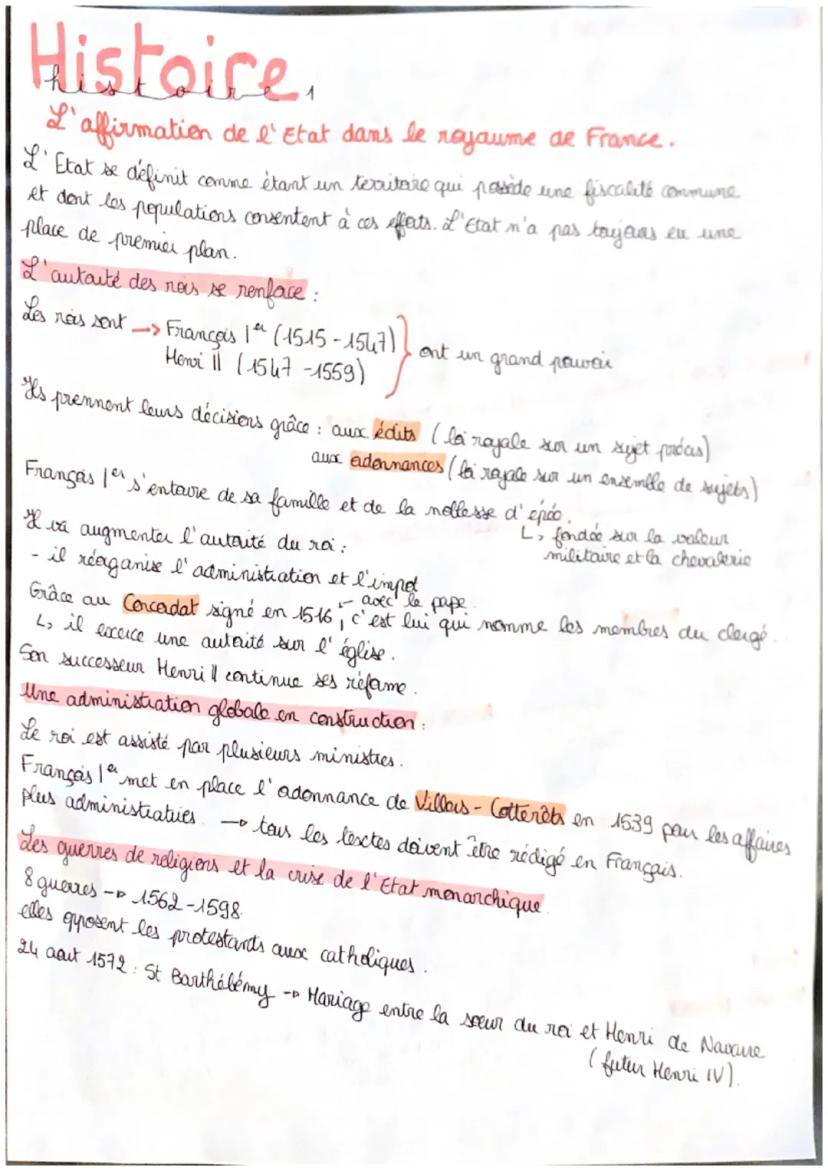 Histoire
histoire 1
L'affirmation de l'Etat dans le royaume de France.
L'Etat se définit comme étant un territoire qui possède une fiscalité commune
et dont les populations consentent à ces efforts. L'Etat n'a pas toujours eu une
place de premier plan.
L'autorité des rois se renforce :
Les rois sont → François Ier (1515-1547)
Henri II (1547-1559)
ont un grand pouvoir
Ils prennent leurs décisions grâce : aux édits (loi royale sur un sujet précis)
aux ordonnances (loi royale sur un ensemble de sujets)
François Ier s'entoure de sa famille et de la noblesse d'épée.
L, fondée sur la valeur
militaire et la chevalerie
Il va augmenter l'autorité du roi :
- il réorganise l'administration et l'impot
← avec le pape
Grâce au Concordat signé en 1516, c'est lui qui nomme les membres du clergé.
L, il exerce une autorité sur l'église.
Son successeur Henri II continue ses réforme.
Une administration globale en construction :
Le roi est assisté par plusieurs ministres.
François Ier met en place l'ordonnance de Villers-Cotterêts en 1539 pour les affaires
plus administratives → tous les textes doivent être rédigé en Français.
Les guerres de religions et la crise de l'Etat monarchique
8 guerres → 1562-1598.
elles opposent les protestants aux catholiques.
24 aout 1572 : St Barthélémy → Mariage entre la sœur du roi et Henri de Navarre
(futur Henri IV).